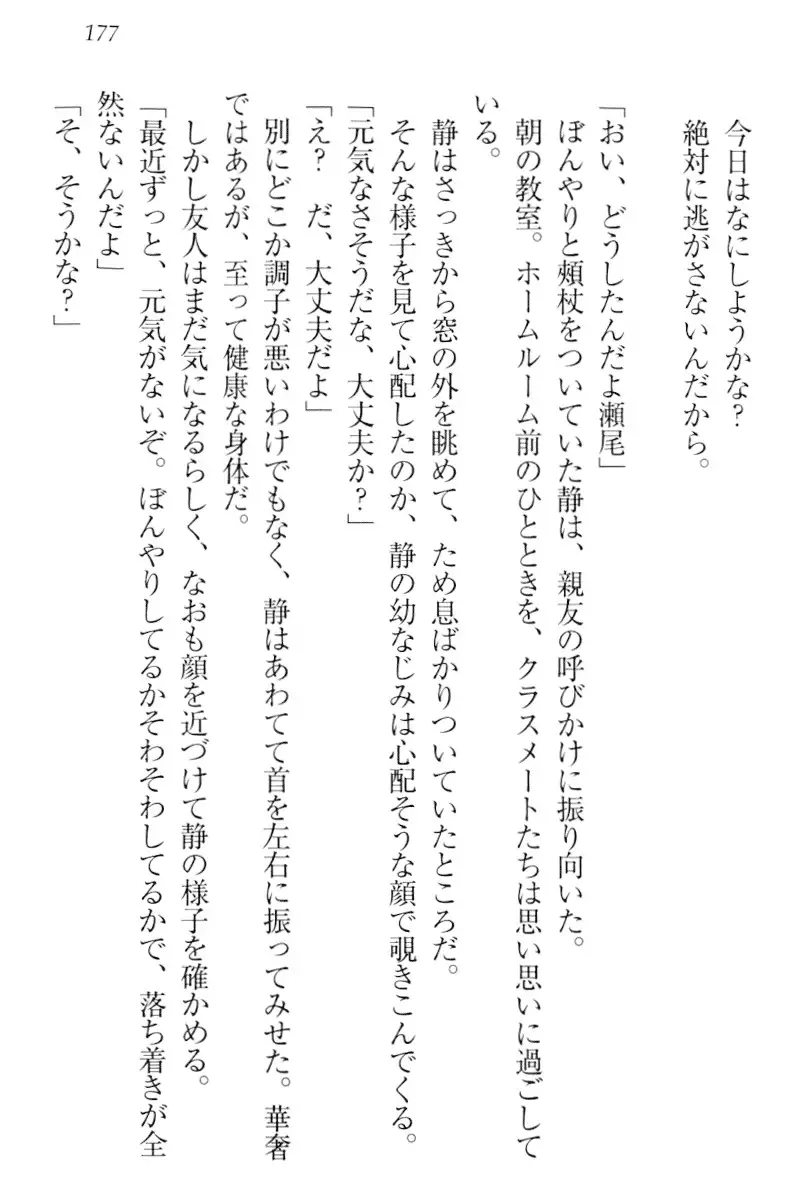 177
今日はなにしようかな？
絶対に逃がさないんだから。
「おい、どうしたんだよ瀬尾」
ぼんやりと頰杖をついていた静は、親友の呼びかけに振り向いた。
朝の教室。ホームルーム前のひとときを、クラスメートたちは思い思いに過ごして
いる。
静はさっきから窓の外を眺めて、ため息ばかりついていたところだ。
そんな様子を見て心配したのか、静の幼なじみは心配そうな顔で覗きこんでくる。
「元気なさそうだな、大丈夫か？」
「え？　だ、大丈夫だよ」
別にどこか調子が悪いわけでもなく、静はあわてて首を左右に振ってみせた。華奢
ではあるが、至って健康な身体だ。
しかし友人はまだ気になるらしく、なおも顔を近づけて静の様子を確かめる。
「最近ずっと、元気がないぞ。ぼんやりしてるかそわそわしてるかで、落ち着きが全
然ないんだよ」
「そ、そうかな？」